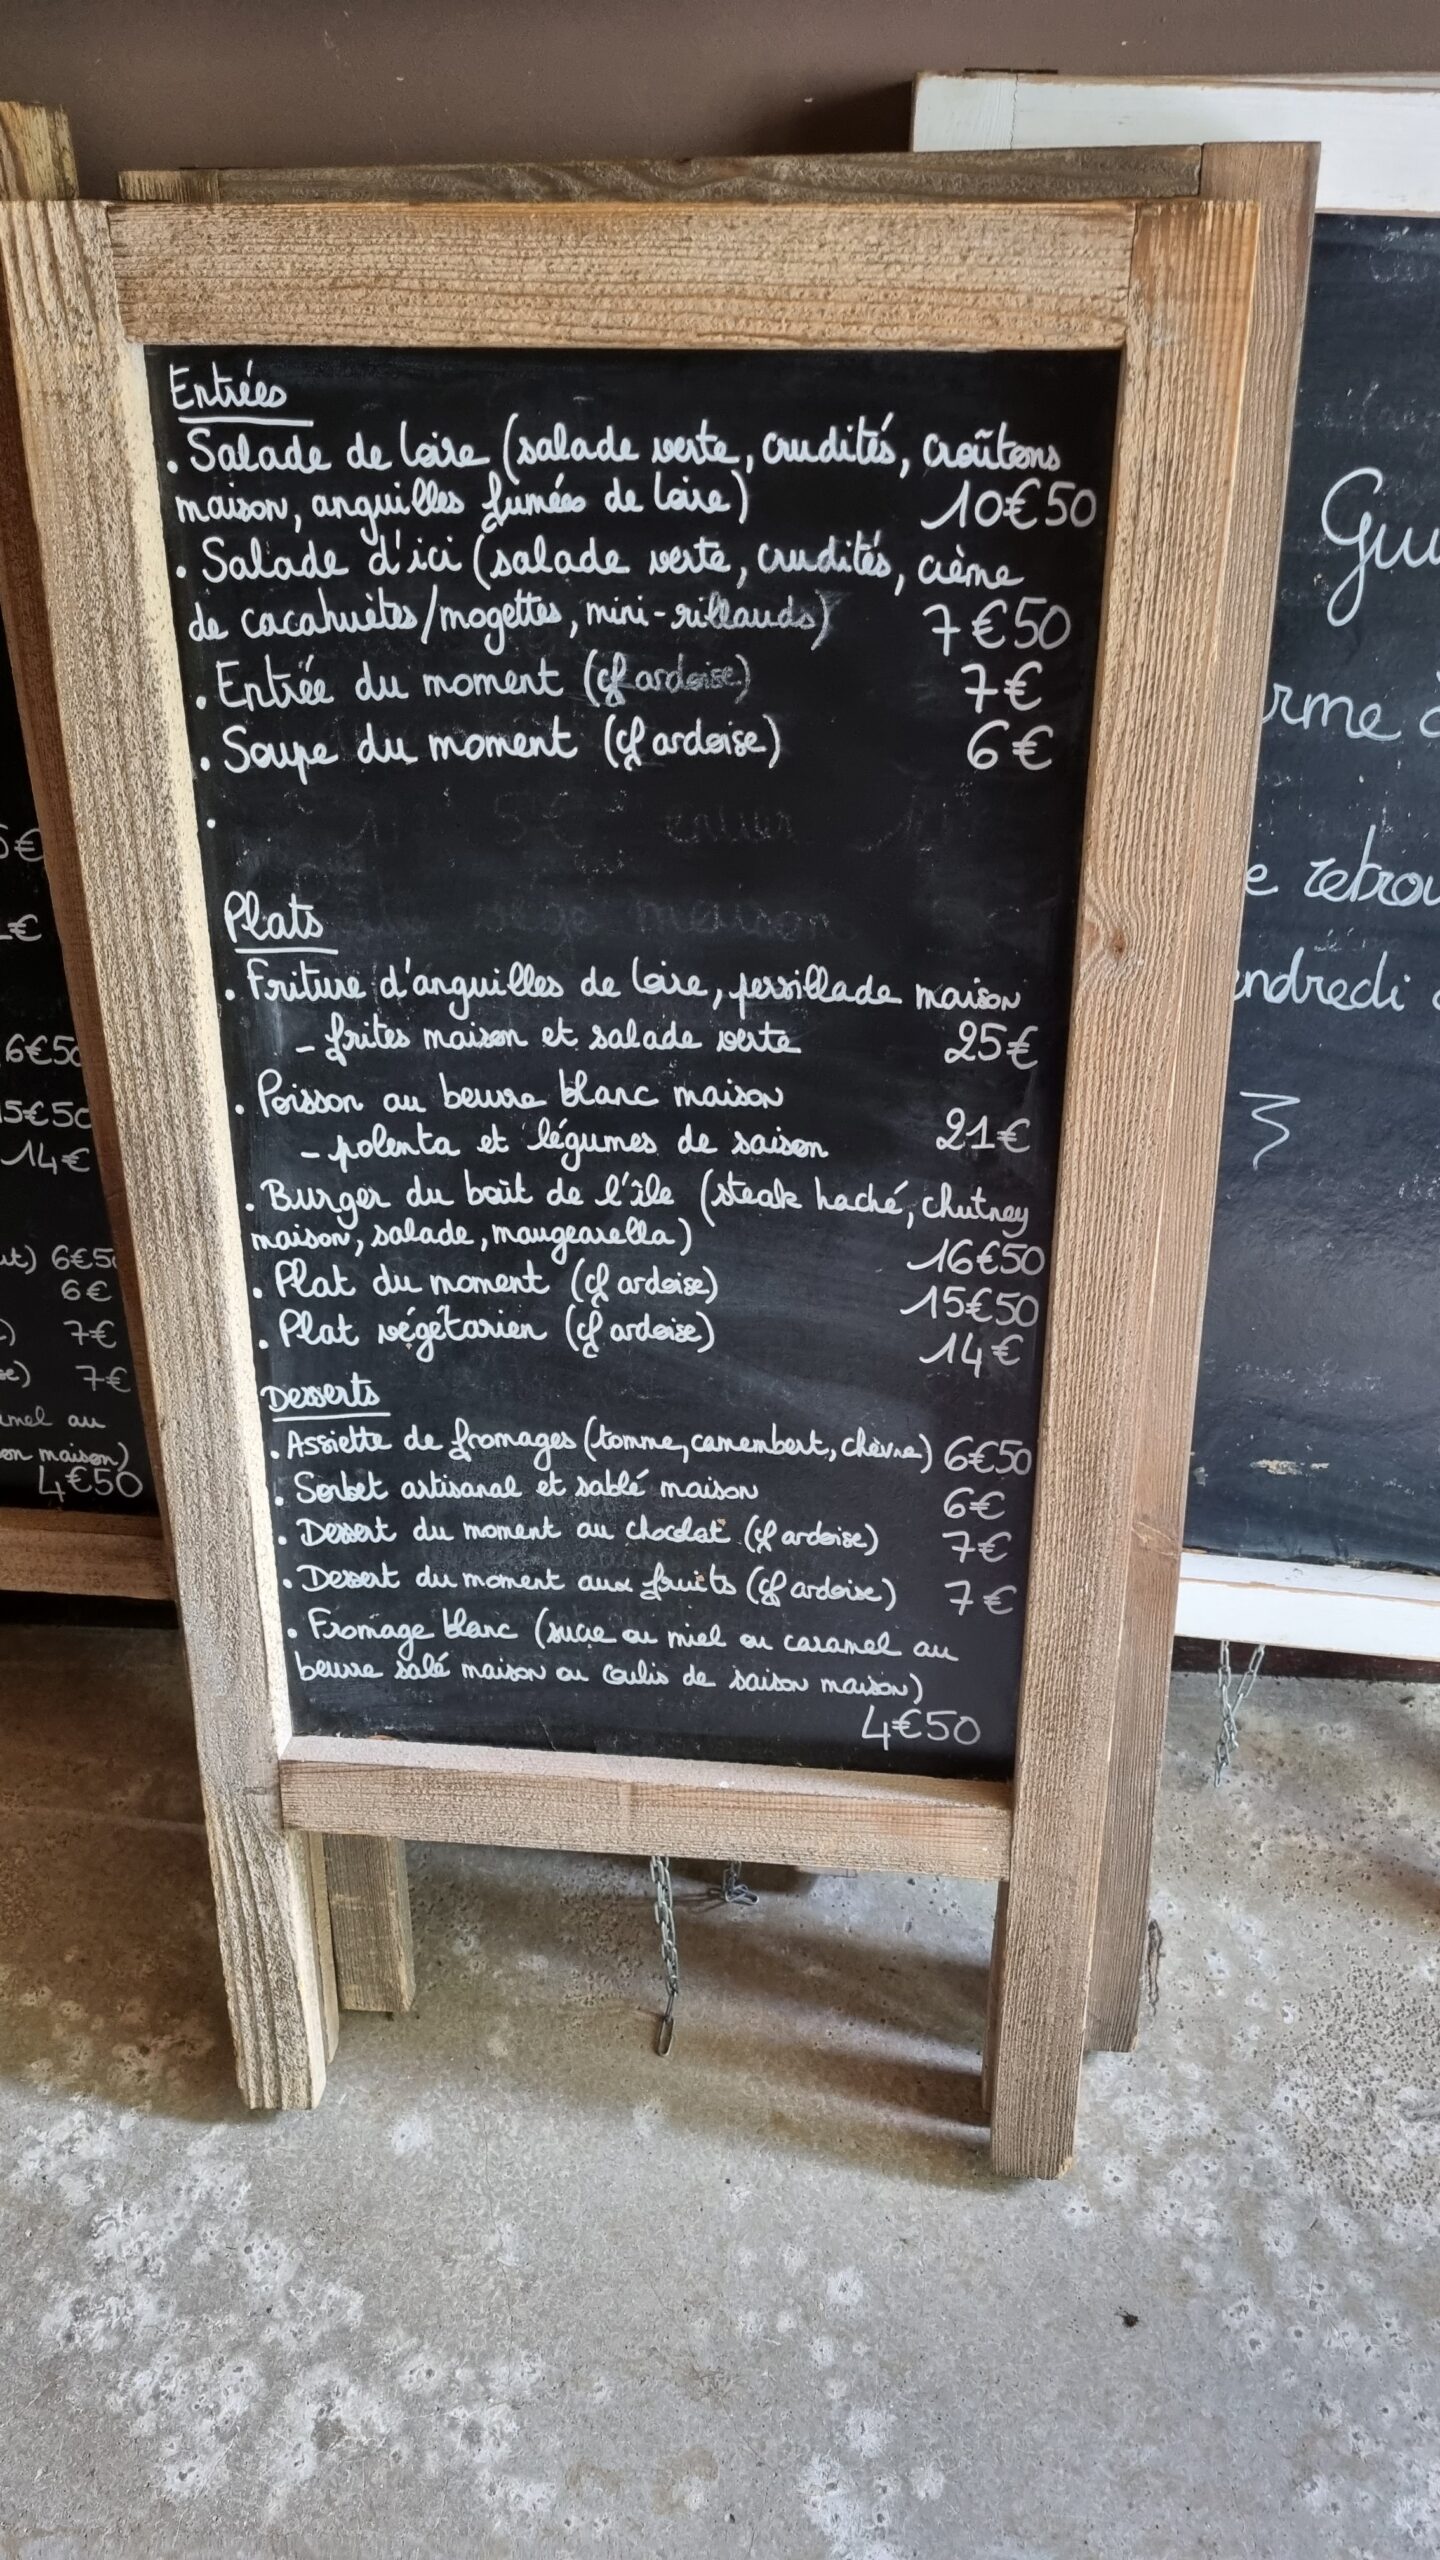 Entrées
. Salade de Loire (salade verte, crudités, croûtons
maison, anguilles fumées de Loire) 10€50
. Salade d'ici (salade verte, crudités, crème
de cacahuètes/mogettes, mini-rillauds) 7€50
. Entrée du moment (cf ardoise) 7€
. Soupe du moment (cf ardoise) 6€
.
5€ entier
maison
Plats
. Friture d'anguilles de Loire, persillade maison
- frites maison et salade verte 25€
. Poisson au beurre blanc maison
- polenta et légumes de saison 21€
. Burger du boût de l'île (steak haché, chutney
maison, salade, maugearella) 16€50
. Plat du moment (cf ardoise) 15€50
. Plat végétarien (cf ardoise) 14€
Desserts
. Assiette de fromages (tomme, camembert, chèvre) 6€50
. Sorbet artisanal et sablé maison 6€
. Dessert du moment au chocolat (cf ardoise) 7€
. Dessert du moment aux fruits (cf ardoise) 7€
. Fromage blanc (sucre ou miel ou caramel au
beurre salé maison ou coulis de saison maison)
4€50
6€50
5€50
14€
6€50
6€
7€
7€
amel au
on maison)
4€50
Gui
rme à
e retrou
endredi